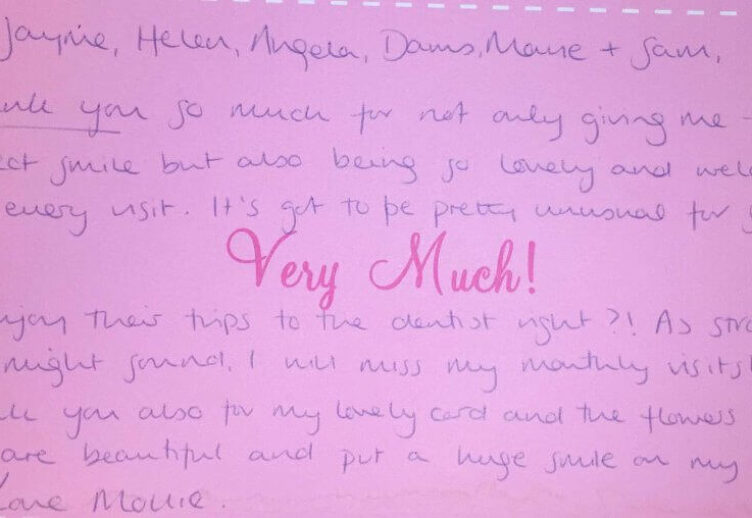 Jayne, Helen, Angela, Dawns, Marie + Sam,
you so much for not only giving me
smile but also being so lovely and
every visit. It's got to be pretty unusual for
Very Much!
their trips to the dentist right?! As
might sound, I will miss my monthly visits!
you also for my lovely card and the flowers
are beautiful and put a huge smile on my
Love Mollie.